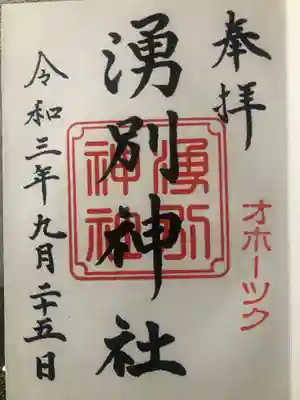 奉拝
オホーツク
湧別神社
湧別
神社
令和三年九月二十五日